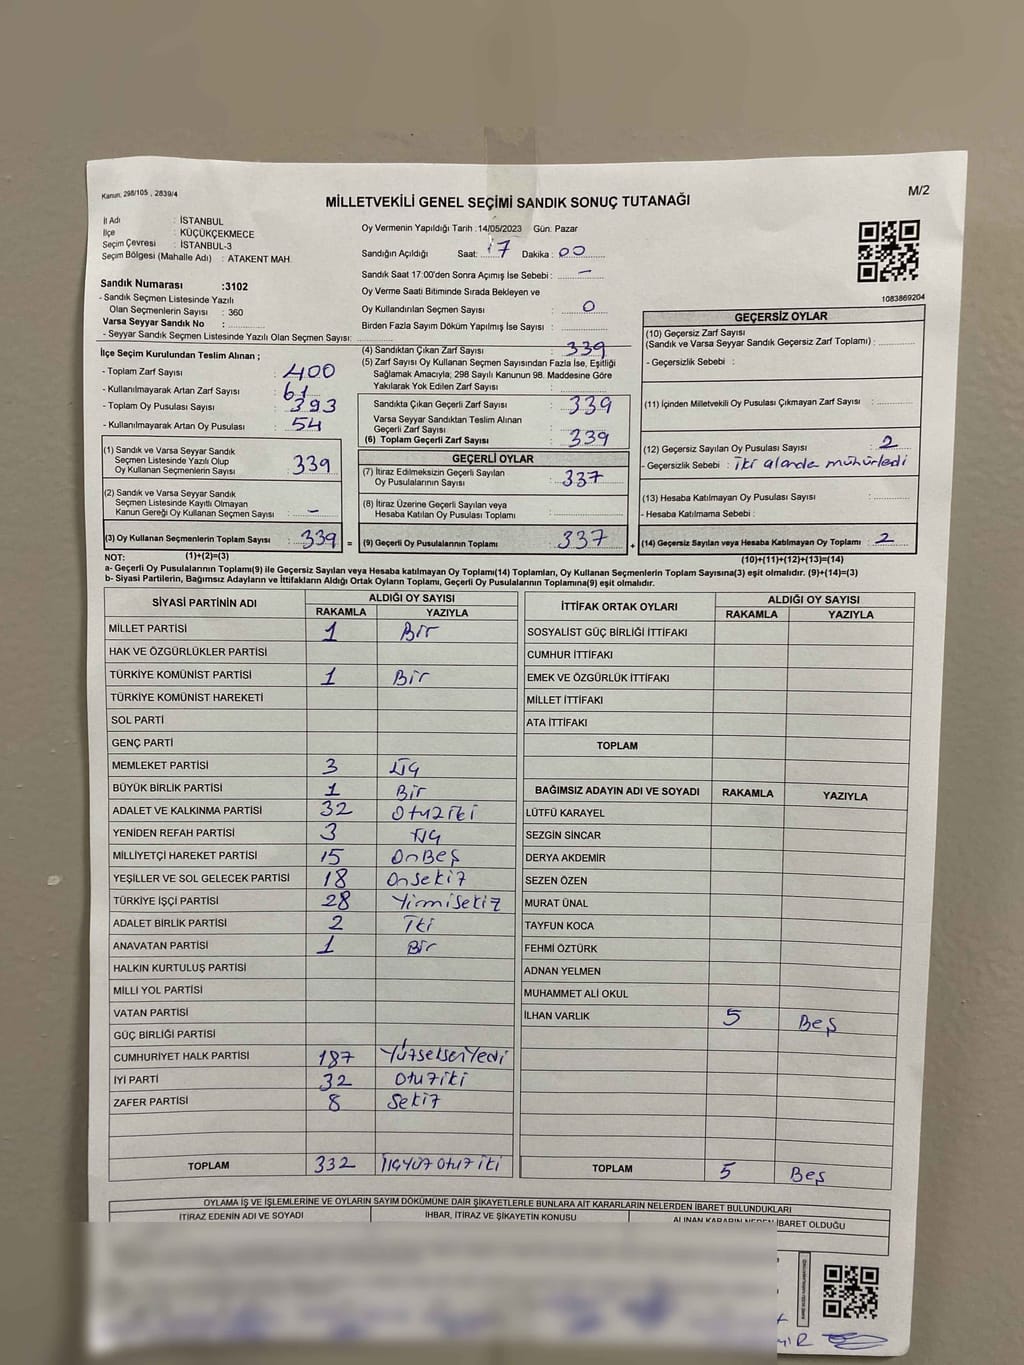 Kanun, 298/105 , 2839/4
M/2
MİLLETVEKİLİ GENEL SEÇİMİ SANDIK SONUÇ TUTANAĞI
İl Adı : İSTANBUL
İlçe : KÜÇÜKÇEKMECE
Seçim Çevresi : İSTANBUL-3
Seçim Bölgesi (Mahalle Adı) : ATAKENT MAH.
Sandık Numarası :3102
- Sandık Seçmen Listesinde Yazılı
Olan Seçmenlerin Sayısı : 360
Varsa Seyyar Sandık No :
- Seyyar Sandık Seçmen Listesinde Yazılı Olan Seçmen Sayısı:
İlçe Seçim Kurulundan Teslim Alınan ;
- Toplam Zarf Sayısı : 400
- Kullanılmayarak Artan Zarf Sayısı : 61
- Toplam Oy Pusulası Sayısı : 393
- Kullanılmayarak Artan Oy Pusulası : 54
(1) Sandık ve Varsa Seyyar Sandık
Seçmen Listesinde Yazılı Olup
Oy Kullanan Seçmenlerin Sayısı : 339
(2) Sandık ve Varsa Seyyar Sandık
Seçmen Listesinde Kayıtlı Olmayan
Kanun Gereği Oy Kullanan Seçmen Sayısı : -
(3) Oy Kullanan Seçmenlerin Toplam Sayısı : 339 =
Oy Vermenin Yapıldığı Tarih :14/05/2023 Gün. Pazar
Sandığın Açıldığı Saat: 17 Dakika : 00
Sandık Saat 17:00'den Sonra Açımış İse Sebebi : -
Oy Verme Saati Bitiminde Sırada Bekleyen ve
Oy Kullandırılan Seçmen Sayısı : 0
Birden Fazla Sayım Döküm Yapılmış İse Sayısı :
(4) Sandıktan Çıkan Zarf Sayısı : 339
(5) Zarf Sayısı Oy Kullanan Seçmen Sayısından Fazla İse, Eşitliği
Sağlamak Amacıyla; 298 Sayılı Kanunun 98. Maddesine Göre
Yakılarak Yok Edilen Zarf Sayısı :
Sandıkta Çıkan Geçerli Zarf Sayısı : 339
Varsa Seyyar Sandıktan Teslim Alınan
Geçerli Zarf Sayısı :
(6) Toplam Geçerli Zarf Sayısı : 339
GEÇERLİ OYLAR
(7) İtiraz Edilmeksizin Geçerli Sayılan
Oy Pusulalarının Sayısı : 337
(8) İtiraz Üzerine Geçerli Sayılan veya
Hesaba Katılan Oy Pusulası Toplamı :
(9) Geçerli Oy Pusulalarının Toplamı : 337 +
1083869204
GEÇERSİZ OYLAR
(10) Geçersiz Zarf Sayısı
(Sandık ve Varsa Seyyar Sandık Geçersiz Zarf Toplamı) :
- Geçersizlik Sebebi :
(11) İçinden Milletvekili Oy Pusulası Çıkmayan Zarf Sayısı :
(12) Geçersiz Sayılan Oy Pusulası Sayısı : 2
- Geçersizlik Sebebi : iki alanda mühürledi
(13) Hesaba Katılmayan Oy Pusulası Sayısı :
- Hesaba Katılmama Sebebi :
(14) Geçersiz Sayılan veya Hesaba Katılmayan Oy Toplamı : 2
NOT: (1)+(2)=(3) (10)+(11)+(12)+(13)=(14)
a- Geçerli Oy Pusulalarının Toplamı(9) ile Geçersiz Sayılan veya Hesaba katılmayan Oy Toplamı(14) Toplamları, Oy Kullanan Seçmenlerin Toplam Sayısına(3) eşit olmalıdır. (9)+(14)=(3)
b- Siyasi Partilerin, Bağımsız Adayların ve İttifakların Aldığı Ortak Oyların Toplamı, Geçerli Oy Pusulalarının Toplamına(9) eşit olmalıdır.
SİYASİ PARTİNİN ADI ALDIĞI OY SAYISI
RAKAMLA YAZIYLA
MİLLET PARTİSİ 1 Bir
HAK VE ÖZGÜRLÜKLER PARTİSİ
TÜRKİYE KOMÜNİST PARTİSİ 1 Bir
TÜRKİYE KOMÜNİST HAREKETİ
SOL PARTİ
GENÇ PARTİ
MEMLEKET PARTİSİ 3 Üç
BÜYÜK BİRLİK PARTİSİ 1 Bir
ADALET VE KALKINMA PARTİSİ 32 Otuziki
YENİDEN REFAH PARTİSİ 3 Üç
MİLLİYETÇİ HAREKET PARTİSİ 15 OnBeş
YEŞİLLER VE SOL GELECEK PARTİSİ 18 Onsekiz
TÜRKİYE İŞÇİ PARTİSİ 28 Yirmisekiz
ADALET BİRLİK PARTİSİ 2 İki
ANAVATAN PARTİSİ 1 Bir
HALKIN KURTULUŞ PARTİSİ
MİLLİ YOL PARTİSİ
VATAN PARTİSİ
GÜÇ BİRLİĞİ PARTİSİ
CUMHURİYET HALK PARTİSİ 187 Yüzseksenyedi
İYİ PARTİ 32 Otuziki
ZAFER PARTİSİ 8 Sekiz
TOPLAM 332 Üçyüz Otuz iki
İTTİFAK ORTAK OYLARI ALDIĞI OY SAYISI
RAKAMLA YAZIYLA
SOSYALİST GÜÇ BİRLİĞİ İTTİFAKI
CUMHUR İTTİFAKI
EMEK VE ÖZGÜRLÜK İTTİFAKI
MİLLET İTTİFAKI
ATA İTTİFAKI
TOPLAM
BAĞIMSIZ ADAYIN ADI VE SOYADI RAKAMLA YAZIYLA
LÜTFÜ KARAYEL
SEZGİN SİNCAR
DERYA AKDEMİR
SEZEN ÖZEN
MURAT ÜNAL
TAYFUN KOCA
FEHMİ ÖZTÜRK
ADNAN YELMEN
MUHAMMET ALİ OKUL
İLHAN VARLIK 5 Beş
TOPLAM 5 Beş
OYLAMA İŞ VE İŞLEMLERİNE VE OYLARIN SAYIM DÖKÜMÜNE DAİR ŞİKAYETLERLE BUNLARA AİT KARARLARIN NELERDEN İBARET BULUNDUKLARI
İTİRAZ EDENİN ADI VE SOYADI İHBAR, İTİRAZ VE ŞİKAYETİN KONUSU ALINAN KARARIN NEDEN İBARET OLDUĞU